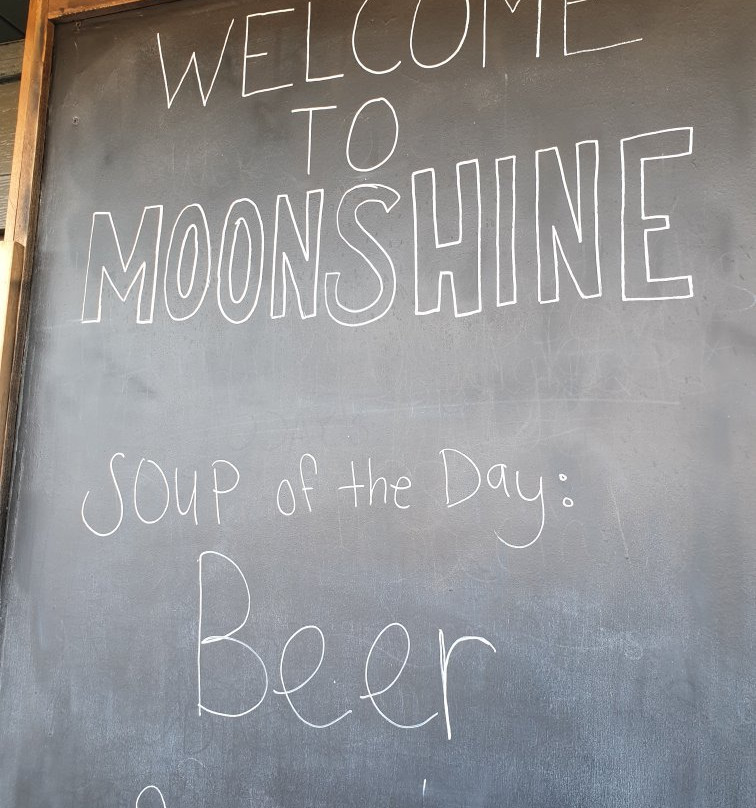 WELCOME
TO
MOONSHINE
Soup of the Day:
Beer